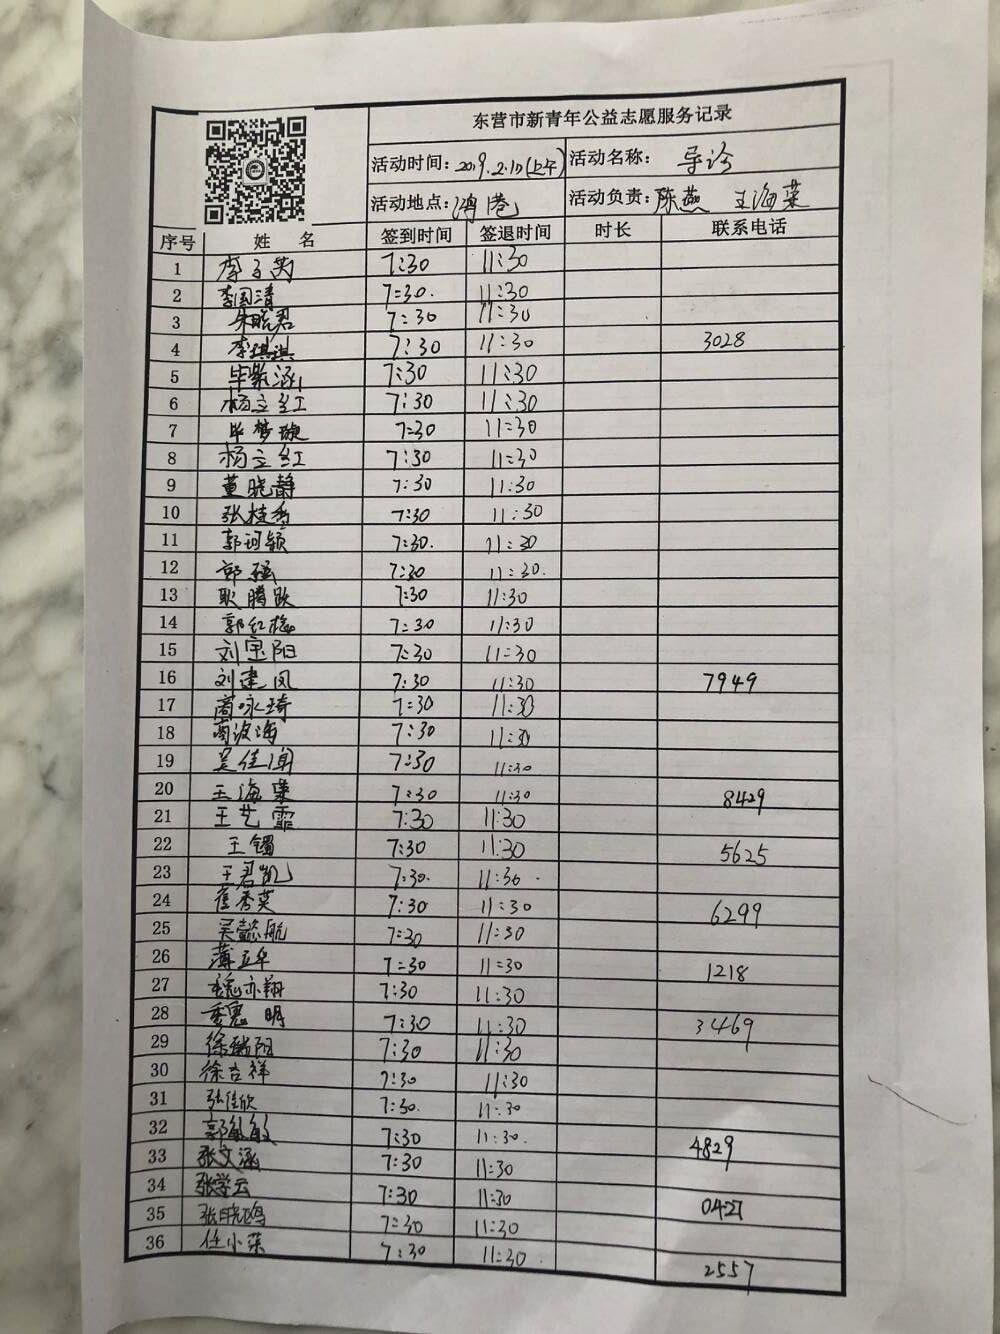 东营市新青年公益志愿服务记录
活动时间：2019.2.10(上午) 活动名称： 导诊
活动地点： 鸿港 活动负责：陈燕 王海荣
序号 姓 名 签到时间 签退时间 时长 联系电话
1 李子笑 7:30 11:30
2 李国清 7:30. 11:30
3 朱晓君 7:30 11:30
4 李琪琪 7:30 11:30 3028
5 毕紫涵 7:30 11:30
6 杨立红 7:30 11:30
7 毕梦璇 7:30 11:30
8 杨立红 7:30 11:30
9 董晓静 7:30 11:30
10 张桂香 7:30 11:30
11 郭珂颖 7:30. 11:30
12 郭强 7:30 11:30.
13 耿腾跃 7:30 11:30
14 郭红梅 7:30 11:30
15 刘宝阳 7:30 11:30
16 刘建凤 7:30 11:30 7949
17 商咏琦 7:30 11:30
18 商波海 7:30 11:30
19 吴佳闻 7:30 11:30
20 王海荣 7:30 11:30 8429
21 王艺霏 7:30 11:30
22 王镯 7:30 11:30 5625
23 王君凯 7:30. 11:30.
24 崔秀英 7:30 11:30 6299
25 吴懿航 7:30 11:30
26 薄立华 7:30 11:30 1218
27 魏亦翔 7:30 11:30
28 季惠明 7:30 11:30 3469
29 徐瑞阳 7:30 11:30
30 徐吉祥 7:30 11:30
31 张佳欣 7:30. 11:30
32 郭敏敏 7:30 11:30. 4829
33 张文涵 7:30 11:30
34 张学云 7:30 11:30 0427
35 张晓鸣 7:30 11:30
36 任小荣 7:30 11:30. 2557